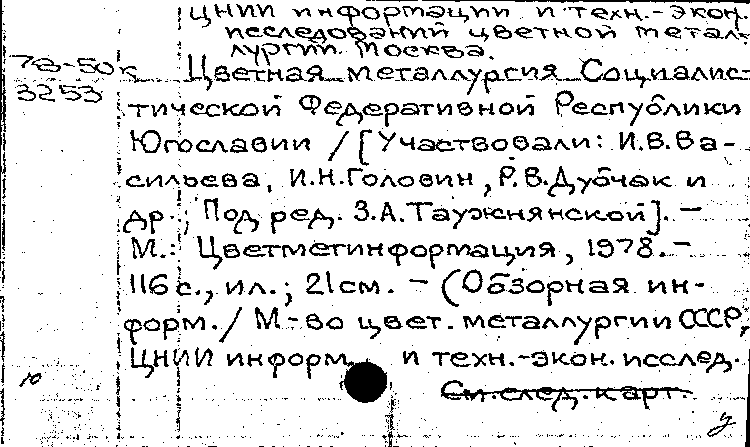 ЦНИИ информации и техн.-экон.
исследований цветной метал-
лургии. Москва.
78-50к Цветная металлургия Социалис-
3253 тической Федеративной Республики
Югославии / [Участвовали: И.В.Ва-
сильева, И.Н.Головин, Р.В.Дубчак и
др.; Под ред. З.А.Таужнянской]. –
М.: Цветметинформация, 1978. –
116 с., ил.; 21 см. – (Обзорная ин-
форм. / М-во цвет. металлургии СССР,
ЦНИИ информ. и техн.-экон. исслед.
10 См. след. карт.